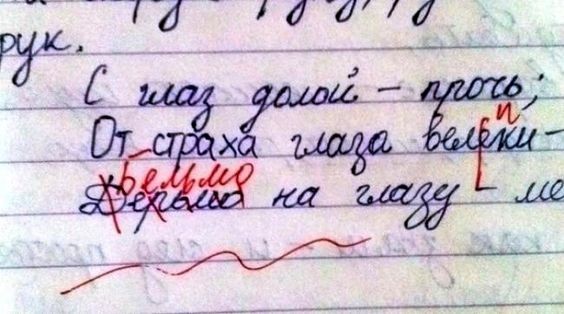 рук.
С глаз долой – прочь;
От страха глаза велеки –
п
бельмо
Дерьмо на глазу –